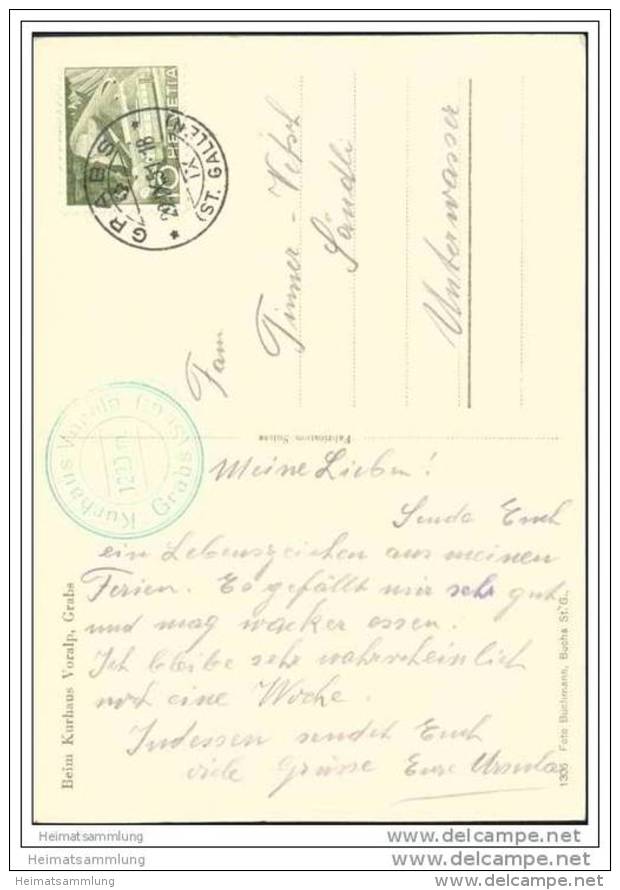 HELVETIA
10
GRABS
(ST. GALLEN)
Fam
Tinner - Vetsch
Sändli
Unterwasser
Kurhaus Voralp
1220 m
Grabs
Fabrication Suisse
Meine Lieben!
Sende Euch
ein Lebenszeichen aus meinen
Ferien. Es gefällt mir sehr gut
und mag wacker essen.
Ich bleibe sehr wahrscheinlich
noch eine Woche.
Indessen sendet Euch
viele Grüsse Eure Ursula
Beim Kurhaus Voralp, Grabs
1305 Foto Buchmann, Buchs St. G.
Heimatsammlung
Heimatsammlung
Heimatsammlung
delcampe.net
delcampe.net
delcampe.net